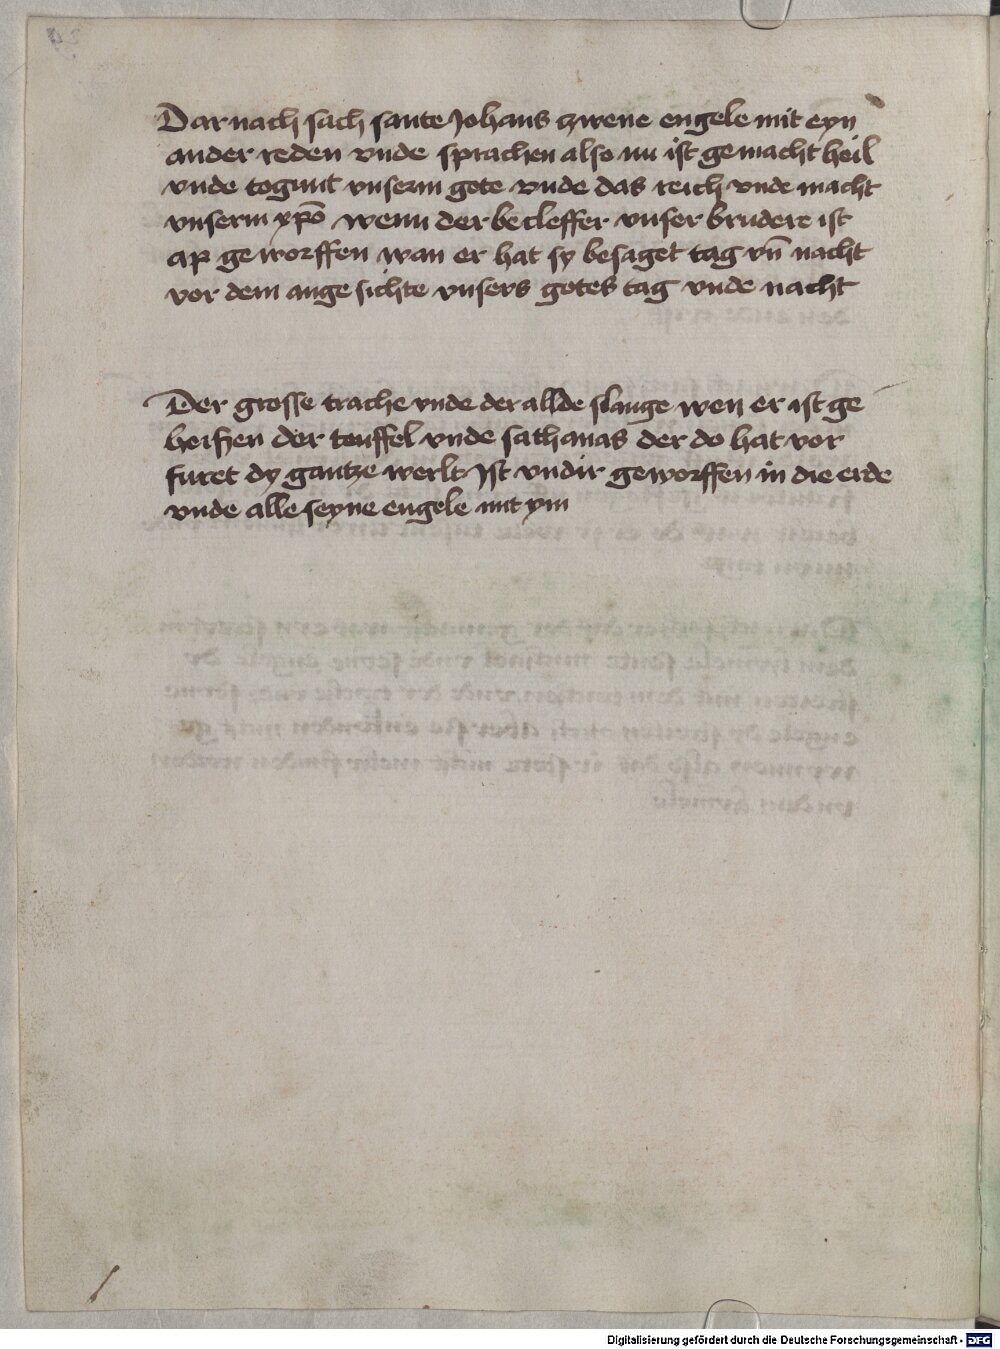 Dar nach sach sante Johans zwene engele mit eyn
ander reden vnde sprachen also nu ist gemacht heil
vnde togunt vnserm gote vnde das reich vnde macht
vnserm xpō wenn der becleffer vnser brudere ist
ap geworffen wan er hat sy besaget tag vn̄ nacht
vor dem ange sichte vnsers gotes tag vnde nacht
Der grosse trache vnde der allde slange wen er ist ge
heissen der teuffel vnde sathanas der do hat vor
furet dy gantze werlt Ist vndir geworffen in die erde
vnde alle seyne engele mit ym
Digitalisierung gefördert durch die Deutsche Forschungsgemeinschaft - DFG